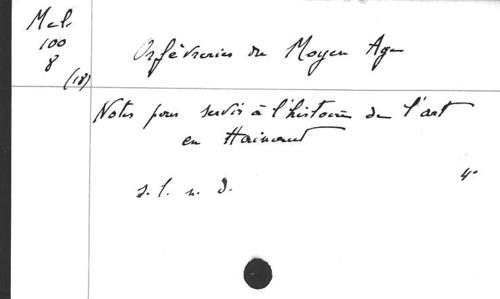 Mel.
100
8
(18)
Orfèvreries du Moyen Age
Notes pour servir à l'histoire de l'art
en Hainaut
s. l. n. d.
4°